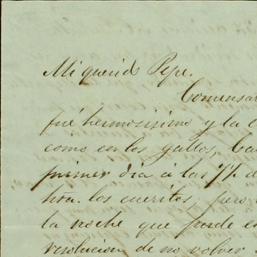 Mi querid Pepe.
Comensar
fué hermosisimo y la c
como en los gallos, Ca
primer dia á las 7½ d
tra. los cueritos, pero
la noche que puede e
resolucion de no volver